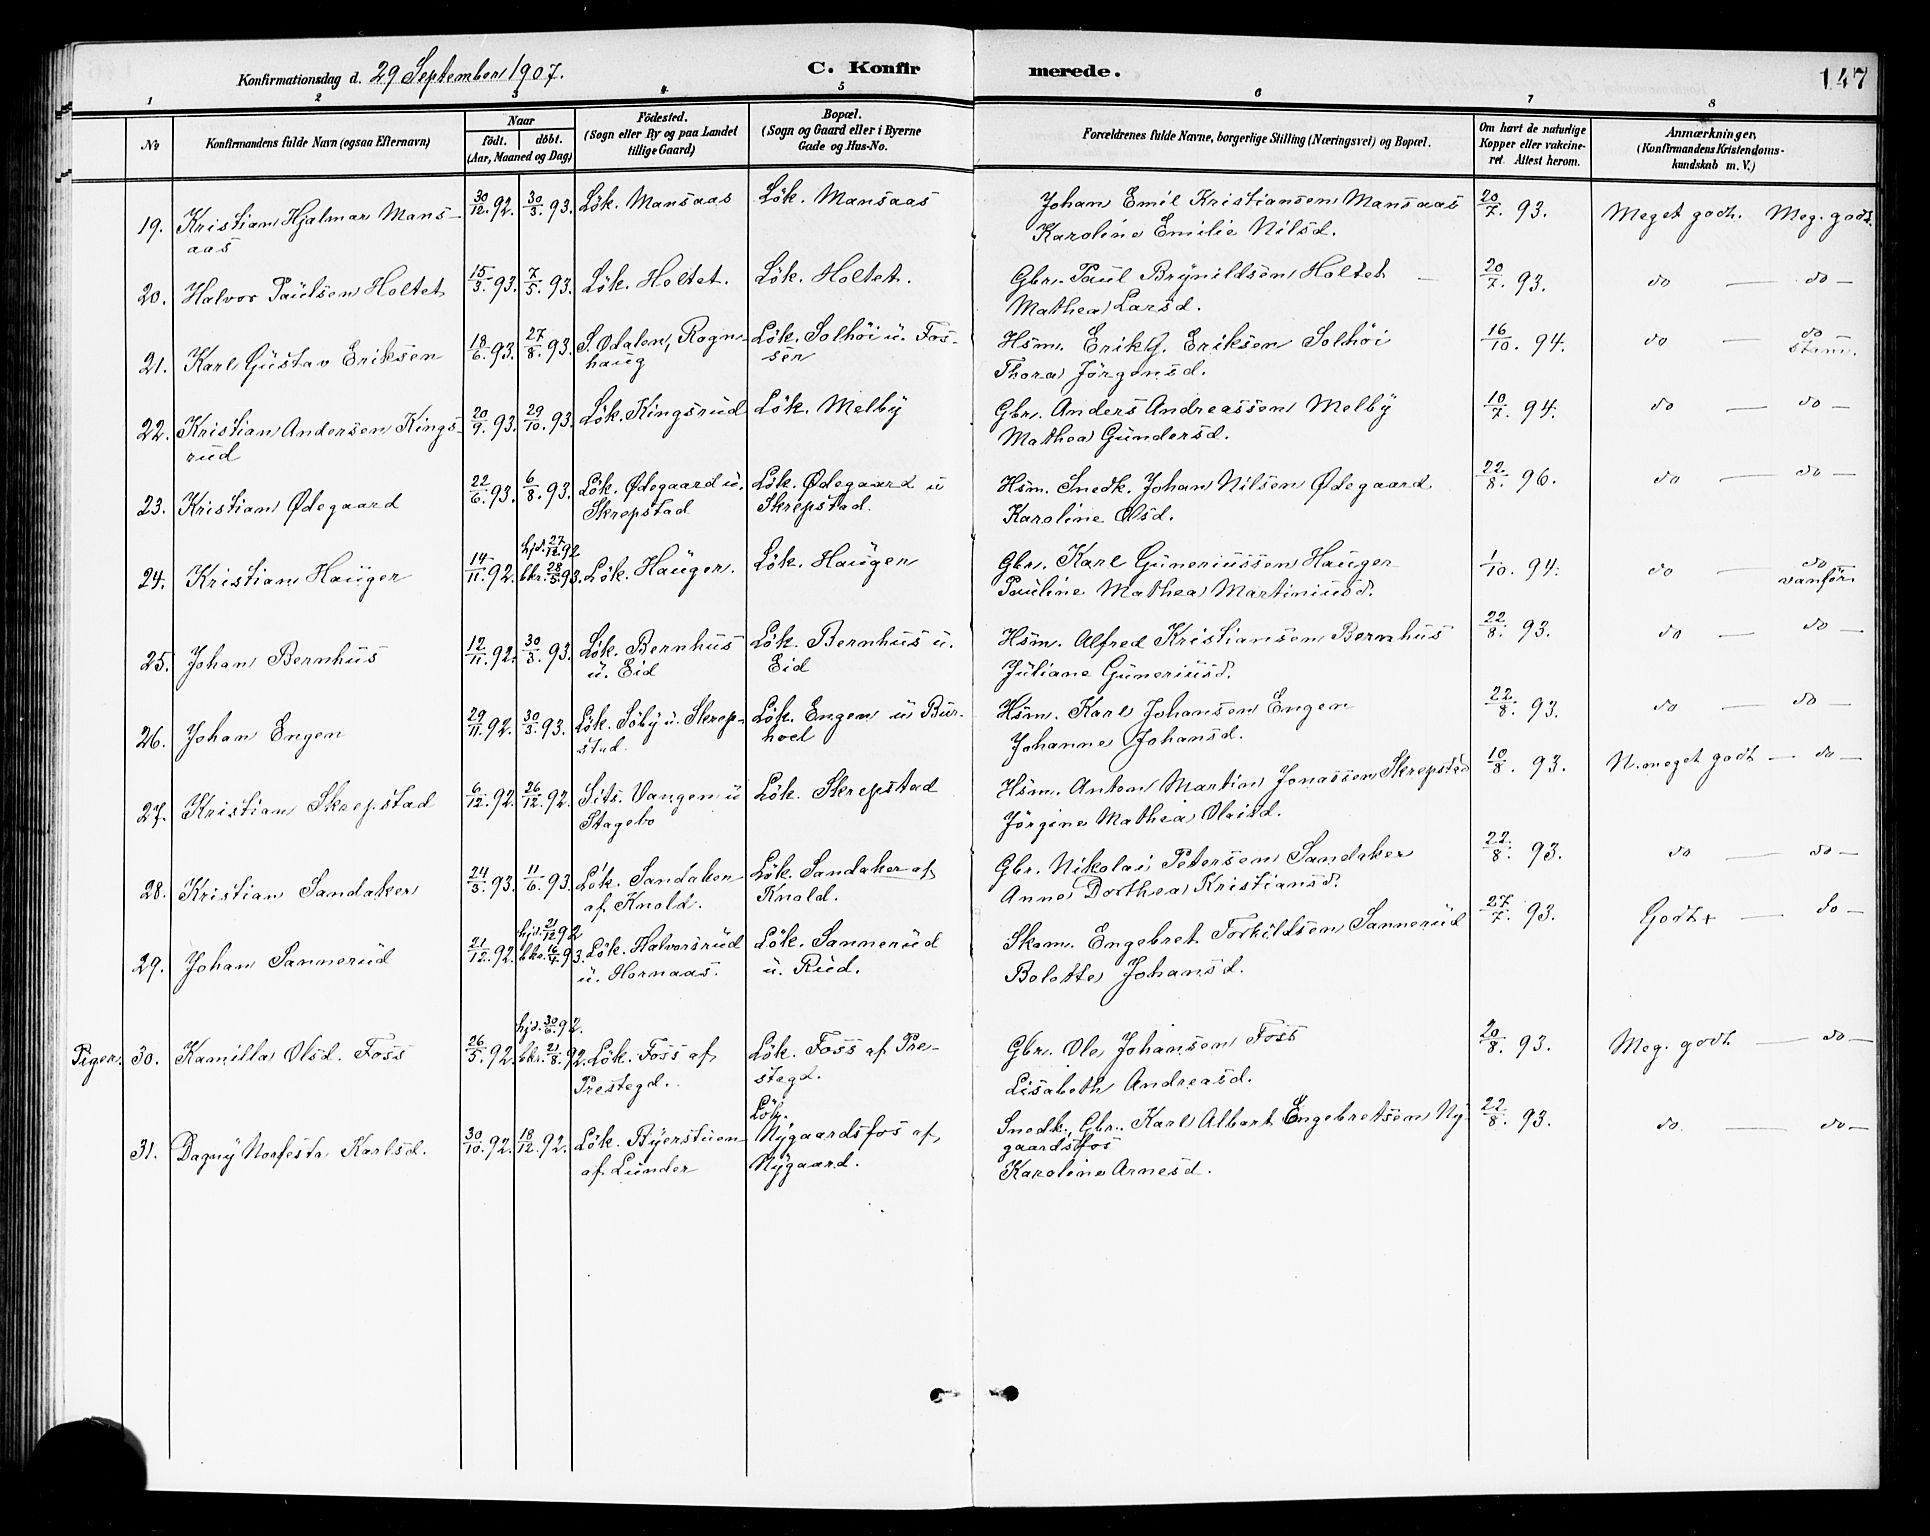 Konfirmationsdag d. 29 September 1907. C. Konfirmerede. 147
1 2 3 4 5 6 7 8
No Konfirmandens fulde Navn (ogsaa Efternavn) Naar födt. döbt. (Aar, Maaned og Dag) Födested. (Sogn eller By og paa Landet tillige Gaard) Bopæl. (Sogn og Gaard eller i Byerne Gade og Hus-No. Forældrenes fulde Navne, borgerlige Stilling (Næringsvei) og Bopæl. Om havt de naturlige Kopper eller vakcineret. Attest herom. Anmærkninger, (Konfirmandens Kristendomskundskab m. V.)
19. Kristian Hjalmar Mansaas 30/12. 92. 30/3. 93. Lök. Mansaas Lök. Mansaas Johan Emil Kristiansen Mansaas 20/7. 93. Meget godt. Meg. godt.
Karoline Emilie Nilsd.
20. Halvor Paulsen Holtet 15/3. 93. 7/5. 93. Lök. Holtet. Lök. Holtet. Gbr. Paul Brynildsen Holtet 20/7. 93. do — do —
Mathea Larsd.
21. Karl Gustav Eriksen 18/6. 93. 27/8. 93. S. Odalen, Rognhaug Lök. Solhöi u. Fossen Hsm. Erik G. Eriksen Solhöi 16/10. 94. do — do stam.
Thora Jörgensd.
22. Kristian Andersen Kingsrud 20/9. 93. 29/10. 93. Lök. Kingsrud Lök. Melby Gbr. Anders Andreassen Melby 10/7. 94. do — do —
Mathea Gundersd.
23. Kristian Ødegaard 22/6. 93. 6/8. 93. Lök. Ødegaard u. Skrepstad Lök. Ødegaard u Skrepstad. Hsm. Snedk. Johan Nilsen Ødegaard 22/8. 96. do — do —
Karoline Olsd.
24. Kristian Hauger 14/11. 92. hjd. 27/12. 92 bkr. 28/5 93. Lök. Hauger. Lök. Hauger Gbr. Karl Guneriussen Hauger 1/10. 94. do — do vanför.
Pauline Mathea Martiniusd.
25. Johan Bernhus 12/11. 92. 30/3. 93. Lök. Bernhus u. Eid Lök. Bernhus u. Eid Hsm. Alfred Kristiansen Bernhus 22/8. 93. do — do —
Juliane Guneriusd.
26. Johan Engen 29/11. 92. 30/3. 93. Lök. Söby u. Skrepstad. Lök. Engen u Burhoel Hsm. Karl Johansen Engen 22/8. 93. do — do —
Johanne Johansd.
27. Kristian Skrepstad 6/12. 92. 26/12. 92. Sits. Vangen u Stagebo Lök. Skrepstad Hsm. Anton Martin Jonassen Skrepstad 10/8. 93. N. meget godt — do —
Jörgine Mathea Olaisd.
28. Kristian Sandaker 24/3. 93. 11/6. 93. Lök. Sandaker af Knold. Lök. Sandaker af Knold. Gbr. Nikolai Petersen Sandaker 22/8. 93. do — do —
Anne Dorthea Kristiansd.
29. Johan Sannerud 21/12. 92. hjd. 21/12 92 bkr. 16/4. 93. Lök. Halvorsrud u. Hornaas. Lök. Sannerud u. Rud. Skom. Engebret Torkildsen Sannerud 27/7. 93. Godt+ — do —
Bolette Johansd.
Piger. 30. Kamilla Olsd. Foss 26/5. 92. hjd. 30/6. 92. bkr. 21/8. 92. Lök. Foss af Prestegd. Lök. Foss af Prestegd. Gbr. Ole Johansen Foss 20/8. 93. Meg. godt — do —
Lisabeth Andreasd.
31. Dagny Norfesta Karlsd. 30/10. 92. 18/12. 92. Lök. Byerstuen af Lunder Lök. Nygaardsfos af Nygaard. Snedk., Gbr. Karl Albert Engebretsen Nygaardsfos 22/8. 93. do. — do —
Karoline Arnesd.